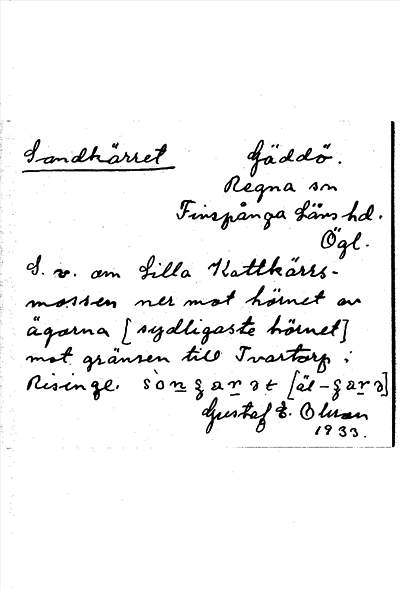 Sandkärret Gäddö.
Regna sn
Finspånga Läns hd.
Ögl.
S. v. om Lilla Kattkärrs-
mossen ner mot hörnet av
ägorna [sydligaste hörnet]
mot gränsen till Tvartorp i
Risinge.
Gustaf E. Olsson
1933.